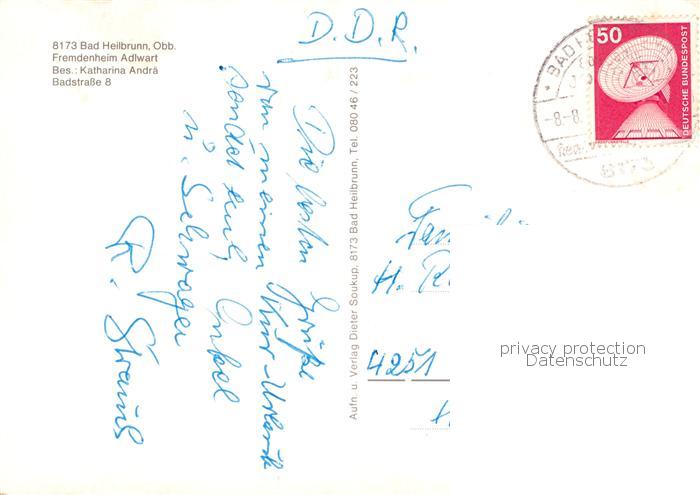 8173 Bad Heilbrunn, Obb.
Fremdenheim Adlwart
Bes.: Katharina Andrä
Badstraße 8
D.D.R.
Die besten Grüße
von meinem Kur-Urlaub
sendet euch Onkel
u. Schwager
R. Strauß
Aufn. u. Verlag Dieter Soukup, 8173 Bad Heilbrunn, Tel. 080 46 / 223
50
DEUTSCHE BUNDESPOST
BAD HE
-8.-8.
8173
Fam
H. R
4251
privacy protection
Datenschutz